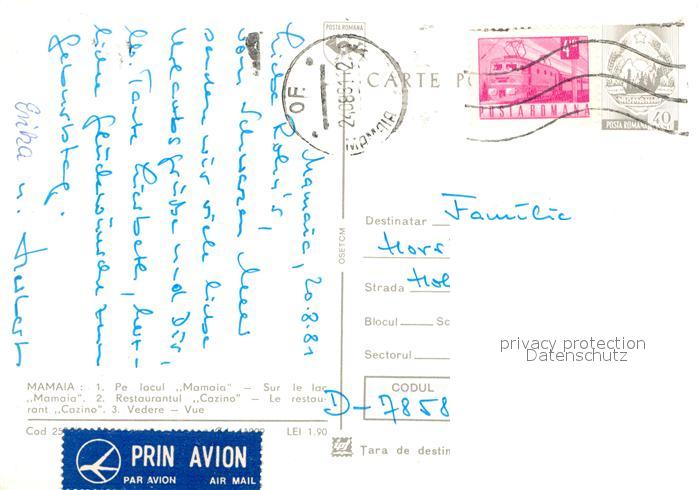 Mamaia, 20.8.81
Liebe
vom Schwarzen Meer
senden wir viele liebe
Urlaubsgrüße und Dir,
lb. Tante Liesbeth, herz-
liche Glückwünsche zum
Geburtstag.
Erika u. Herbert
MAMAIA : 1. Pe lacul „Mamaia" — Sur le lac
„Mamaia". 2. Restaurantul „Cazino" — Le restau-
rant „Cazino". 3. Vedere — Vue
LEI 1.90
PRIN AVION
PAR AVION AIR MAIL
OSETCM
POSTA ROMANA
OF.
24.08.81
MAMAIA
CARTE
4L
POSTA ROMANA
POSTA ROMANA 40
BANI
Destinatar Familie
Strada
Blocul
Sectorul
CODUL
D-7858
Țara de destin
privacy protection
Datenschutz